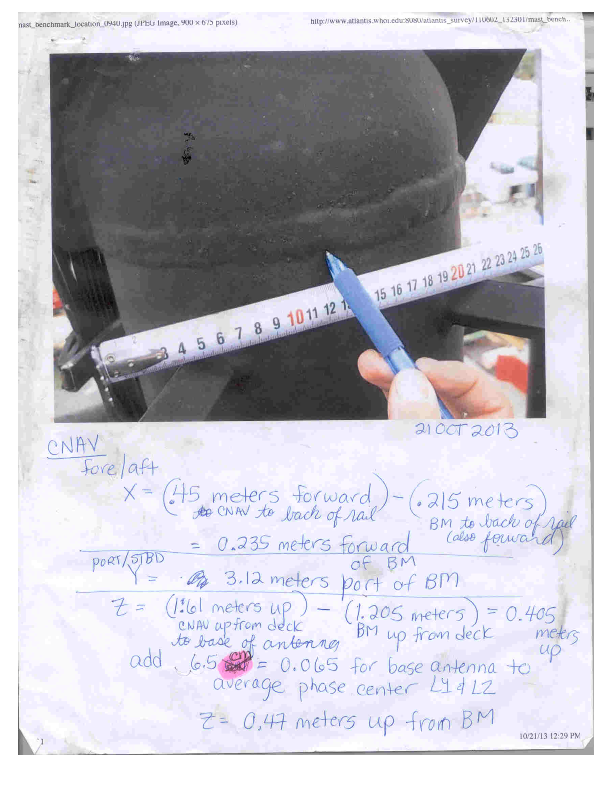 mast_benchmark_location_0940.jpg (JPEG Image, 900 × 675 pixels)
http://www.atlantis.whoi.edu:8080/atlantis_survey/110602_132301/mast_bench...
3 4 5 6 7 8 9 10 11 12 15 16 17 18 19 20 21 22 23 24 25 26
21 OCT 2013
CNAV
fore/aft
X = (.45 meters forward) - (.215 meters)
CNAV to back of rail
BM to back of rail
(also forward)
= 0.235 meters forward
of BM
PORT/STBD
Y = 3.12 meters port of BM
Z = (1.61 meters up) - (1.205 meters) = 0.405
meters
up
CNAV up from deck
to base of antenna
BM up from deck
add .6.5 cm = 0.065 for base antenna to
average phase center L1 & L2
Z = 0.47 meters up from BM
1
10/21/13 12:29 PM